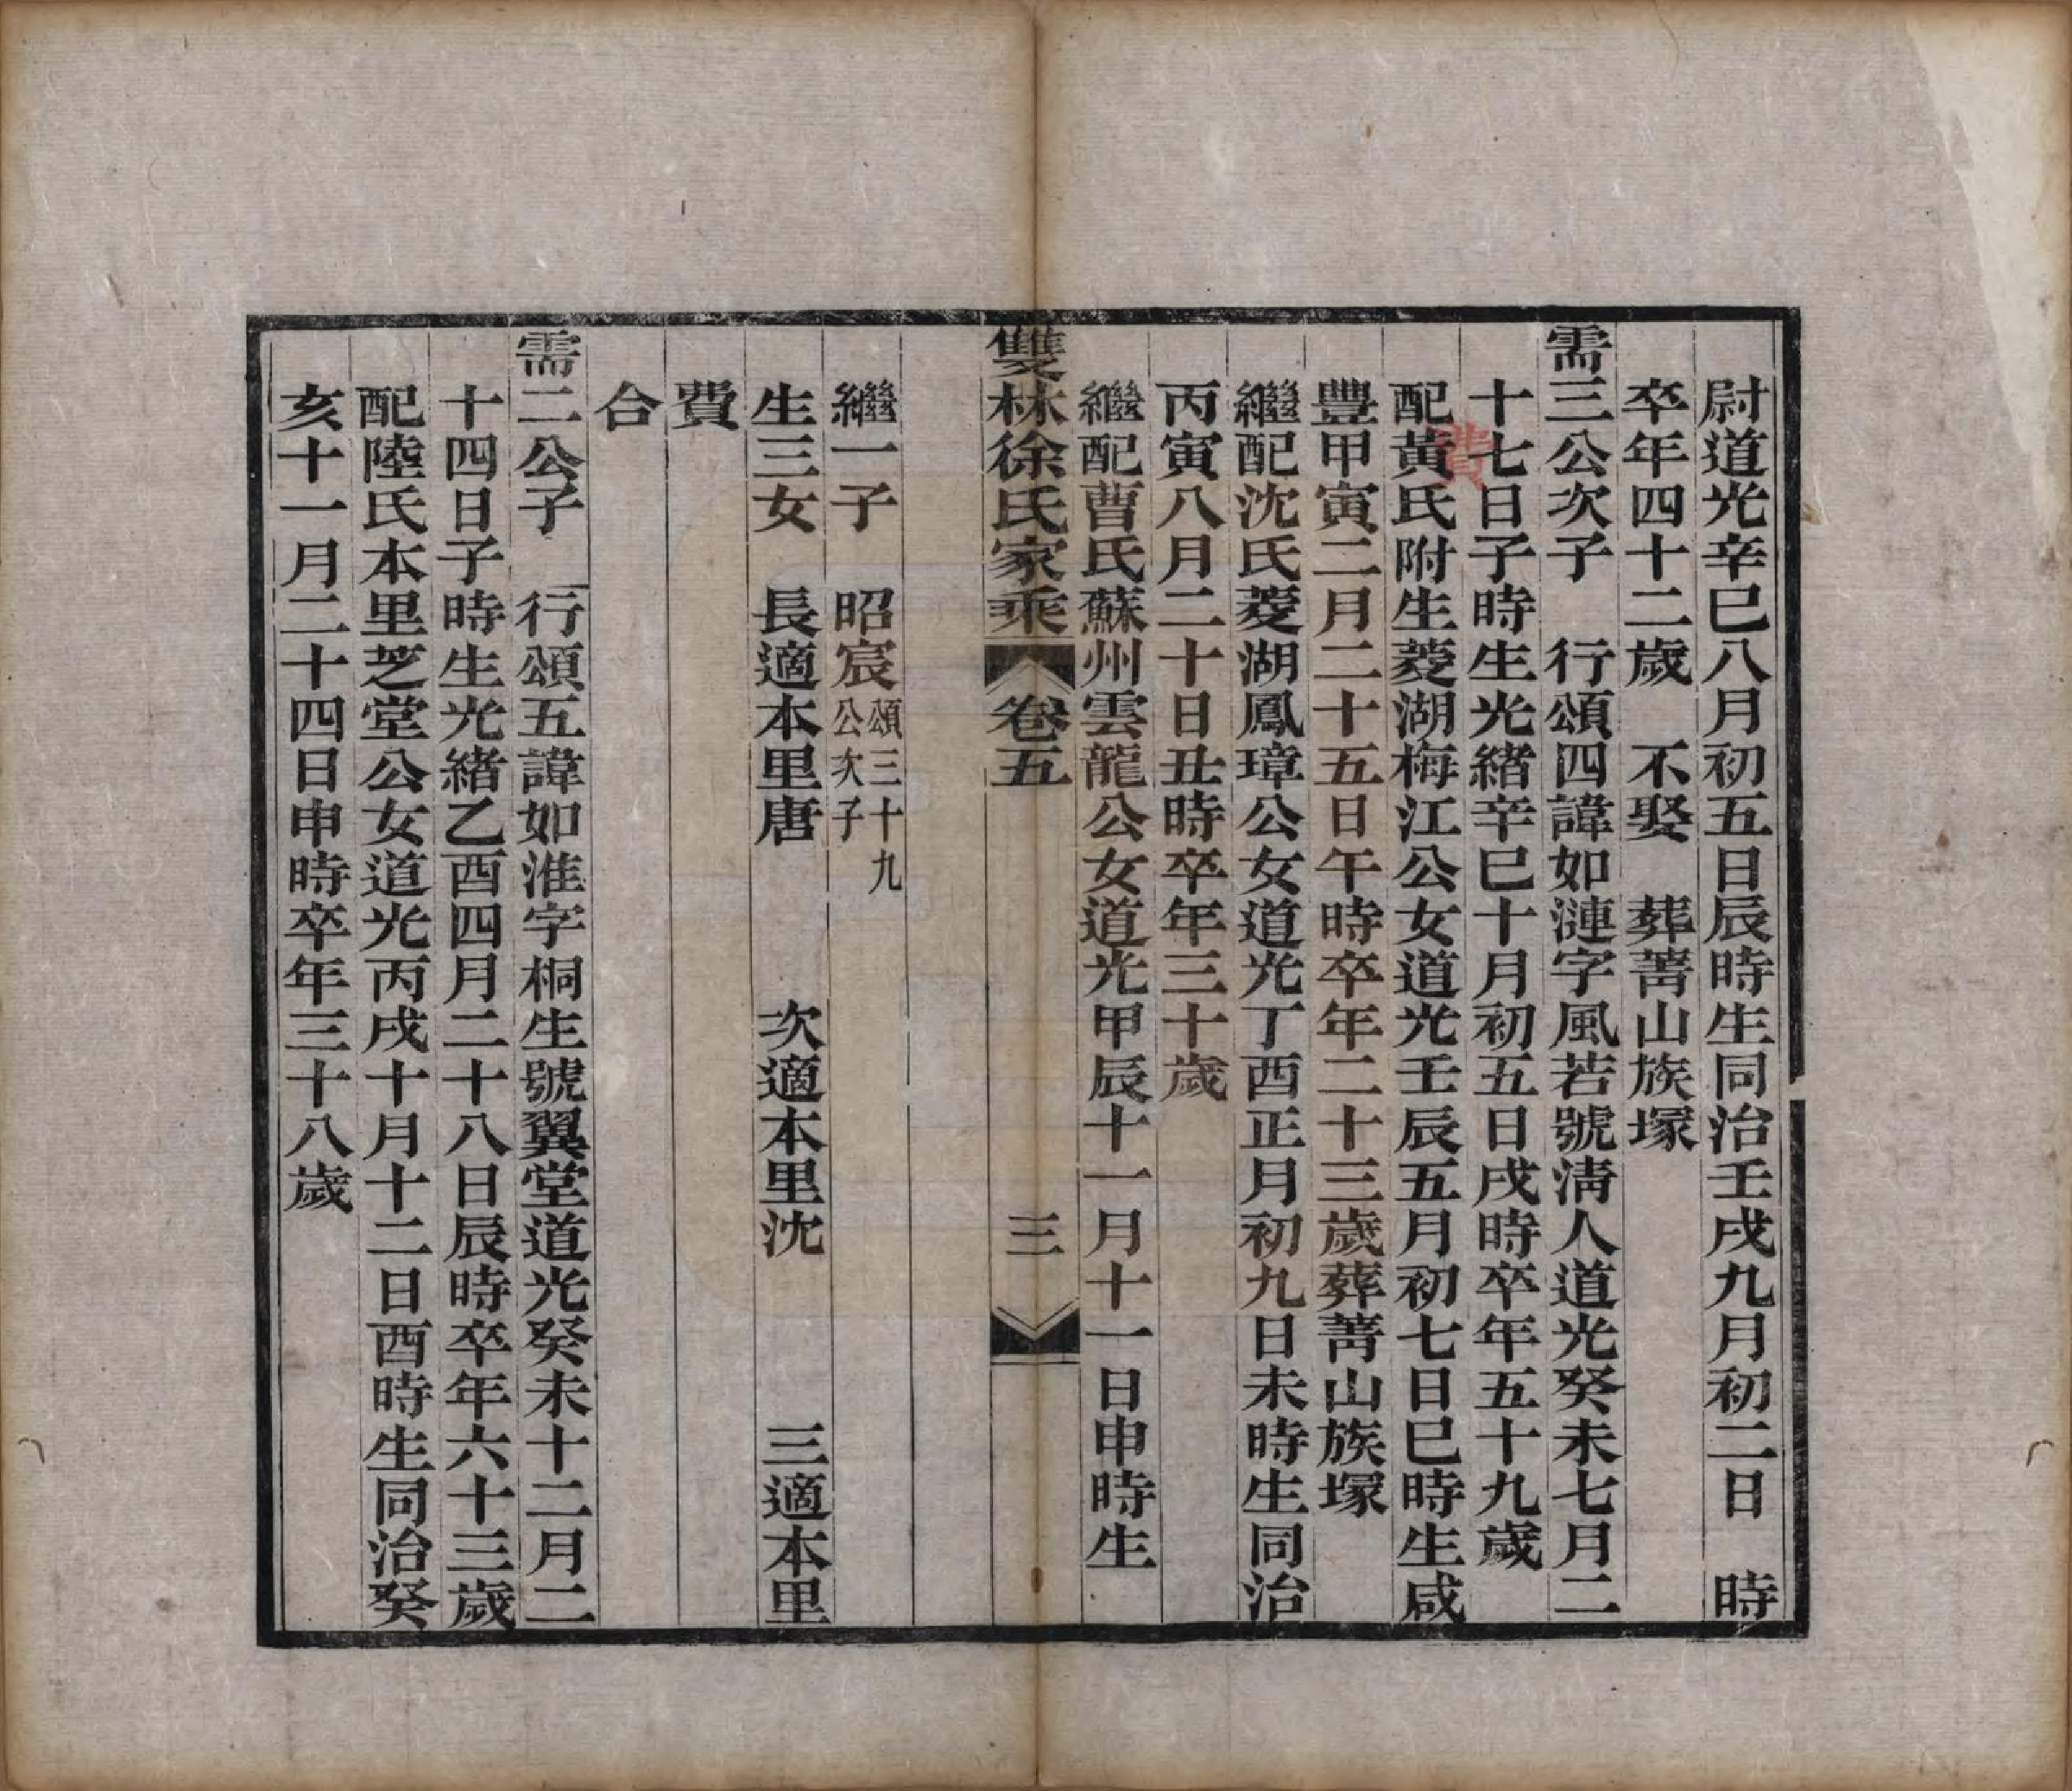 尉道光辛巳八月初五日辰時生同治壬戌九月初二日　時
卒年四十二歲　不娶　葬菁山族塚
需三公次子　行頌四諱如漣字風若號淸人道光癸未七月二
十七日子時生光緒辛巳十月初五日戌時卒年五十九歲
配黃氏附生菱湖梅江公女道光壬辰五月初七日巳時生咸
費
豐甲寅二月二十五日午時卒年二十三歲葬菁山族塚
繼配沈氏菱湖鳳璋公女道光丁酉正月初九日未時生同治
丙寅八月二十日丑時卒年三十歲
繼配曹氏蘇州雲龍公女道光甲辰十一月十一日申時生
雙林徐氏家乘　卷五　三
繼一子　昭宸頌三十九公次子
生三女　長適本里唐　次適本里沈　三適本里
費
合
需二公子　行頌五諱如淮字桐生號翼堂道光癸未十二月二
十四日子時生光緒乙酉四月二十八日辰時卒年六十三歲
配陸氏本里芝堂公女道光丙戌十月十二日酉時生同治癸
亥十一月二十四日申時卒年三十八歲